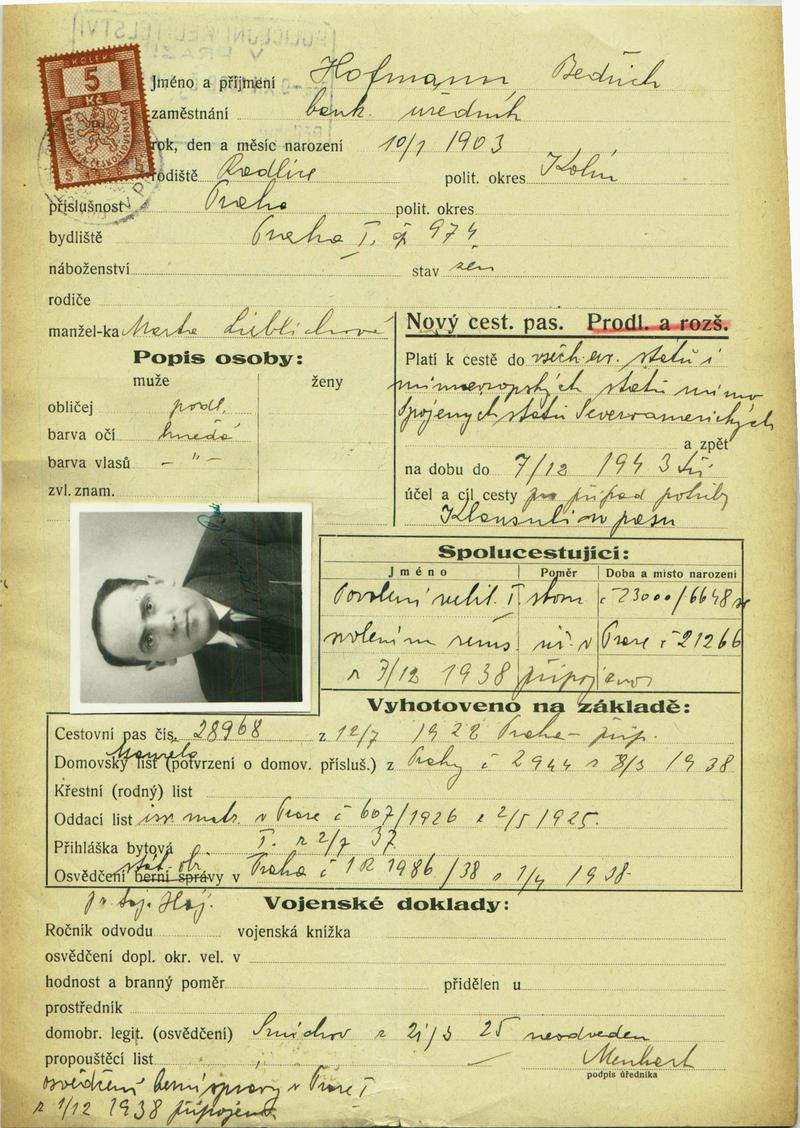 POLICEJNÍ ŘEDITELSTVÍ
V PRAZE
KOLEK
5
Kč
REPUBLIKA ČESKOSLOVENSKÁ
5 5
Jméno a příjmení Hofmann Bedřich
zaměstnání bank. úředník
rok, den a měsíc narození 10/1 1903
rodiště Radlice polit. okres Kolín
příslušnost Praha polit. okres
bydliště Praha I. čp 974
náboženství stav žen
rodiče
manžel-ka Marta Lieblichová
Nový cest. pas. Prodl. a rozš.
Popis osoby:
muže ženy
obličej podl.
barva očí hnědá
barva vlasů - " -
zvl. znam.
Platí k cestě do všech ev. států i
mimoevropských států mimo
Spojených států Severoamerických
a zpět
na dobu do 7/12 1943
účel a cíl cesty pro případ potřeby
v pasu
Spolucestující:
Jméno Poměr Doba a místo narození
Povolení velit. I. sboru č 23000/6648
svolením zems. úř. v Praze č 21266
z 7/12 1938 připojeno
Vyhotoveno na základě:
Cestovní pas čís. 28968 z 12/7 1928 Praha - přip.
Domovský list (potvrzení o domov. přísluš.) z Prahy č 2944 z 8/3 1938
Křestní (rodný) list
Oddací list isr. matr. v Praze č 607/1926 z 2/5 1925.
Přihláška bytová I. z 2/7 37.
stát. obč.
Osvědčení berní správy v Praha č 1R 1986/38 z 1/4 1938
Vojenské doklady:
Ročník odvodu vojenská knížka
osvědčení dopl. okr. vel. v
hodnost a branný poměr přidělen u
prostředník
domobr. legit. (osvědčení) Smíchov z 21/3 25 neodveden
propouštěcí list
podpis úředníka
osvědčení berní správy v Praze I
z 1/12 1938 připojeno.